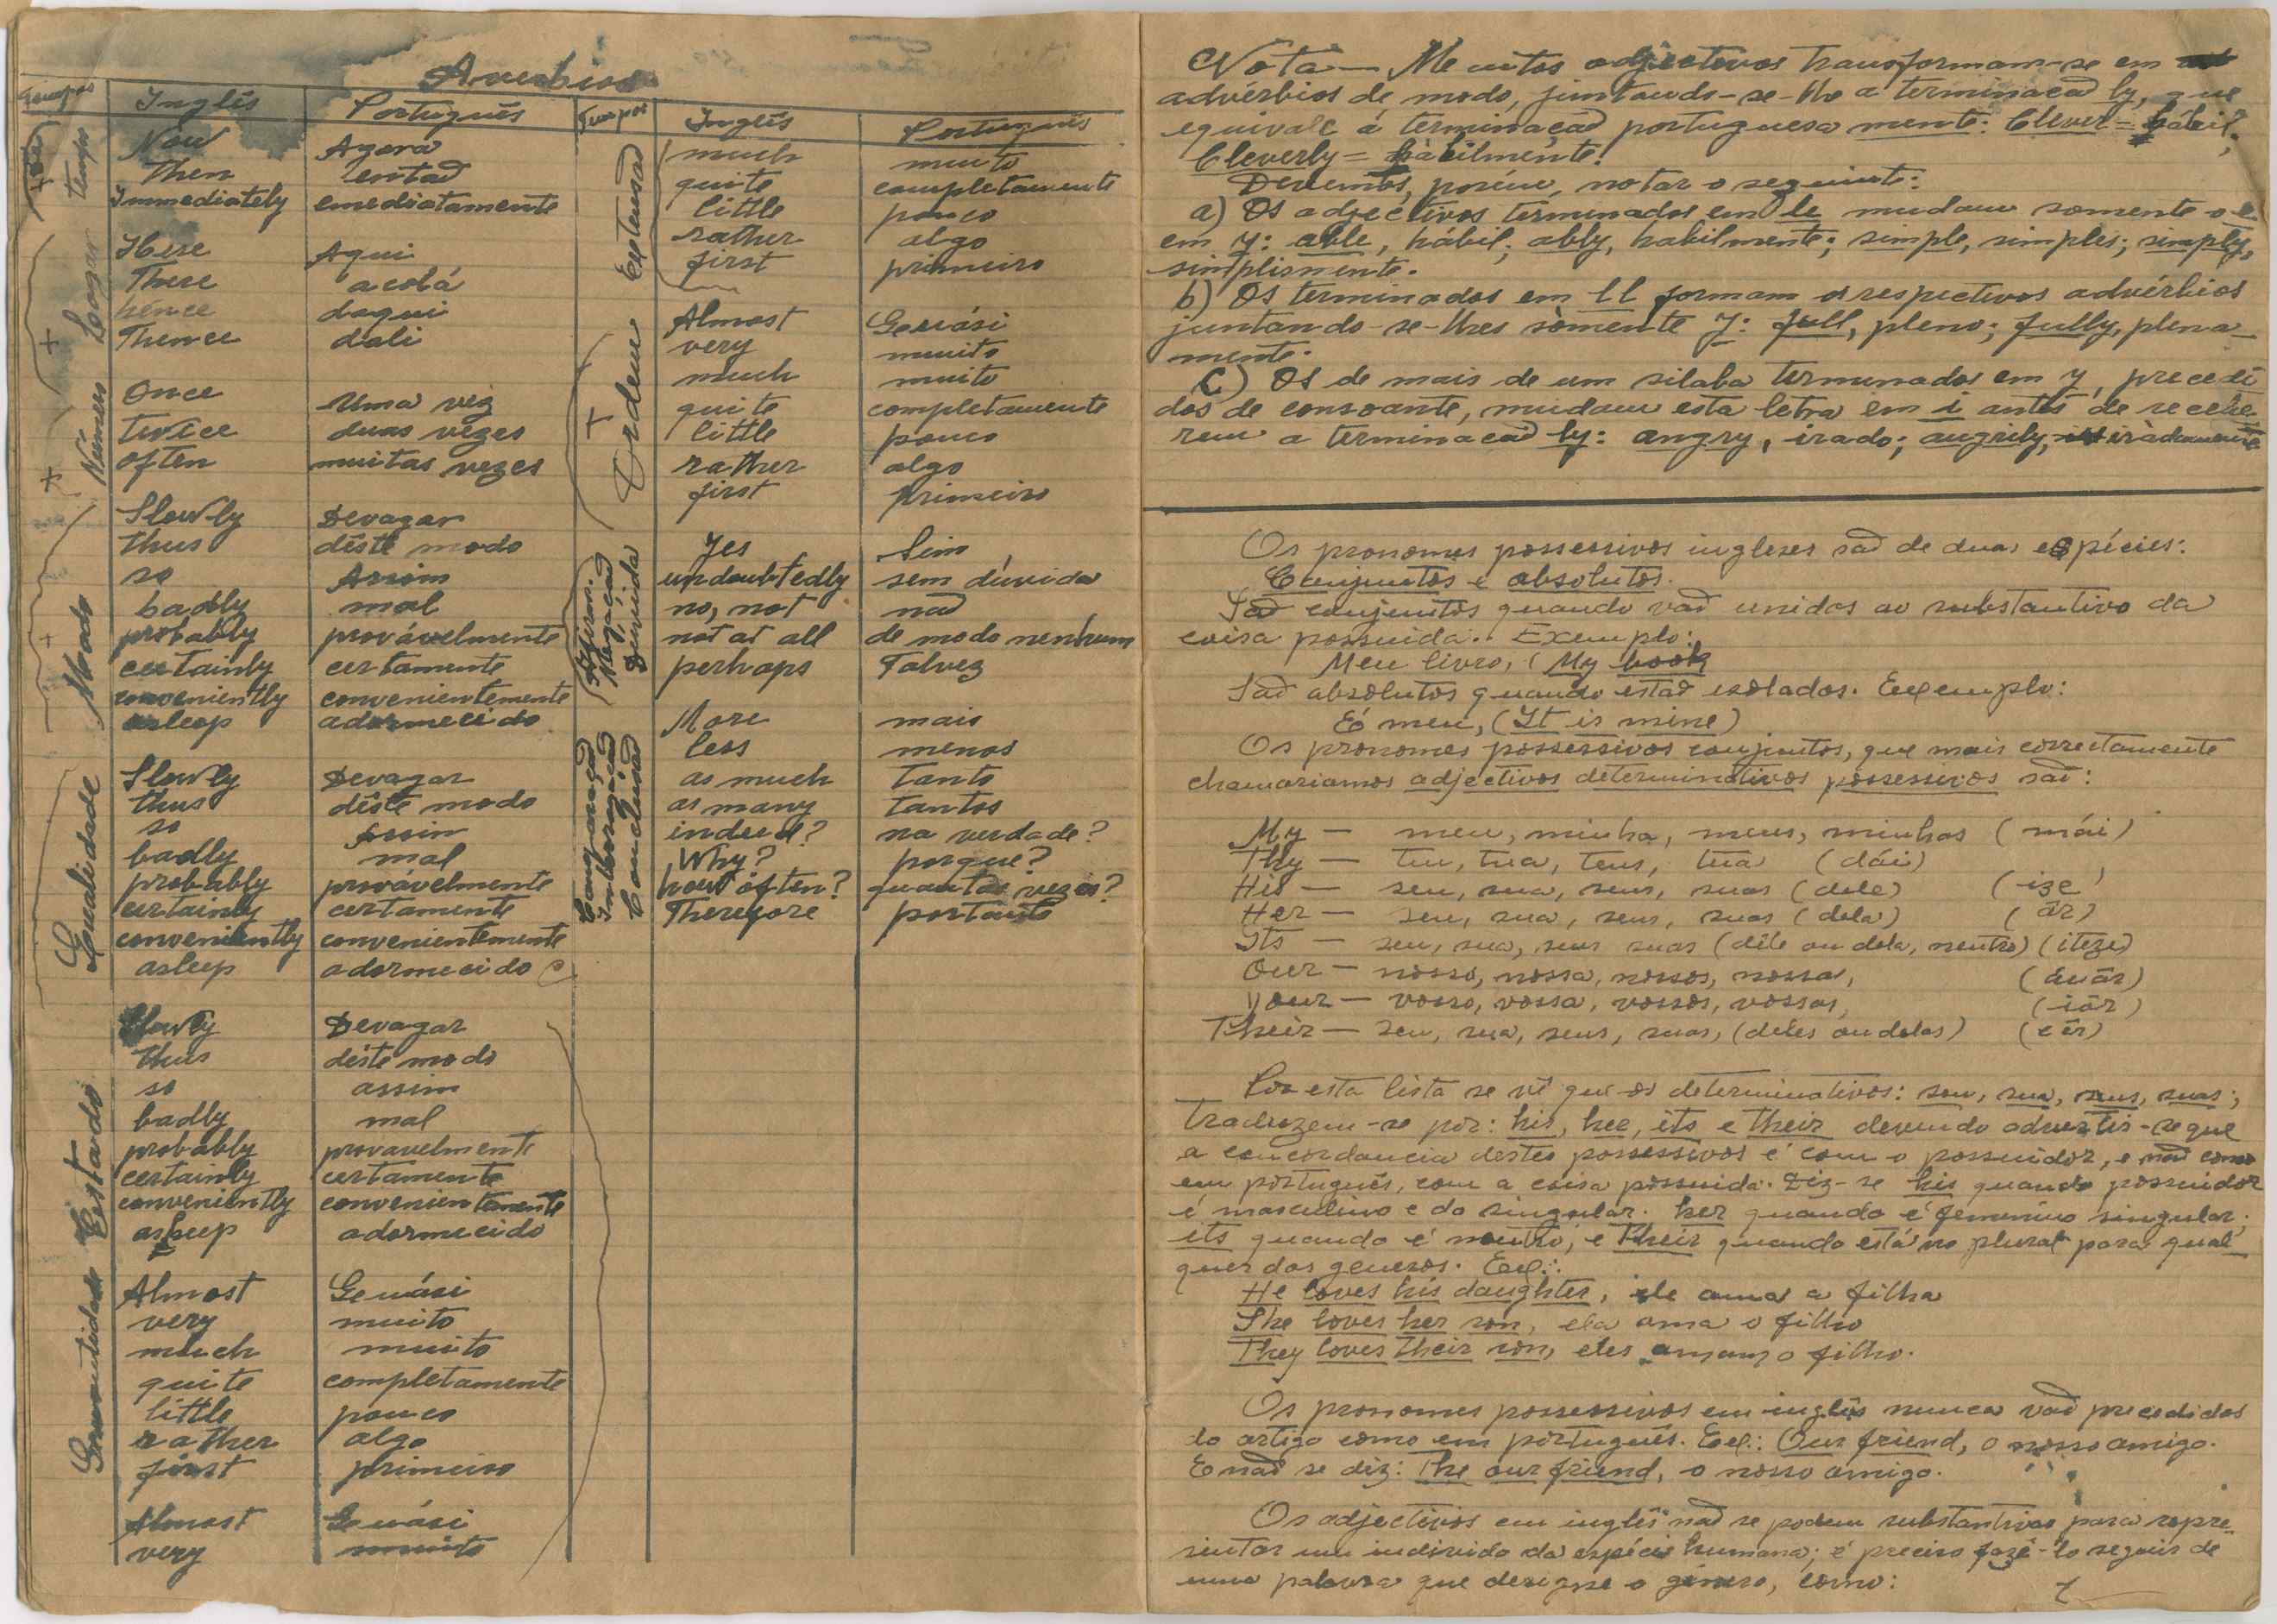 Adverbios
Grupos Inglês Português
tempo
Now Agora
Then entaõ
Immediately emediatamente
Logar
Here Aqui
There acolá
hence daqui
Thence dali
Número
Once Uma vez
twice duas vêzes
often muitas vezes
Modo
Slowly Devagar
thus dêste modo
so Assim
badly mal
probably provávelmente
certainly certamente
conveniently convenientemente
asleep adormecido
Qualidade
Slowly Devagar
thus dêste modo
so Assim
badly mal
probably provávelmente
certainly certamente
conveniently convenientemente
asleep adormecido
Estado
Slowly Devagar
thus dêste modo
so assim
badly mal
probably provavelmente
certainly certamente
conveniently convenientemente
asleep adormecido
Quantidade
Almost Quási
very muito
much muito
quite completamente
little pouco
rather algo
first primeiro
Almost Quási
very muito
Grupos Inglês Português
Extensaõ
much muito
quite completamente
little pouco
rather algo
first primeiro
Ordem
Almost Quási
very muito
much muito
quite completamente
little pouco
rather algo
first primeiro
Afirm.
Negaçaõ
Dúvida
Yes Sim
undoubtedly sem dúvida
no, not naõ
not at all de modo nenhum
perhaps Talvez
Comparaçaõ
Interrogaçaõ
Conclusaõ
More mais
less menos
as much tanto
as many tantos
indeed? na verdade?
Why? porque?
how often? quantas vezes?
Therefore portanto
Nota — Muitos adjectivos transformam-se em
advérbios de modo, juntando-se-lhe a terminaçaõ ly, que
equivale á terminaçaõ portuguesa mente: Clever = hábil;
Cleverly = hàbilmente.
Devemos, porém, notar o seguinte:
a) Os adjectivos terminados em le mudam somente o e
em y: able, hábil; ably, habilmente; simple, simples; simply,
simplismente.
b) Os terminados em ll formam os respectivos advérbios
juntando-se-lhes sòmente y: full, pleno; fully, plena-
mente.
C) Os de mais de um silaba terminados em y, precedi
dos de consoante, mudam esta letra em i antes de recebe-
rem a terminacaõ ly: angry, irado; angrily, iràdamente
Os pronomes possessivos ingleses saõ de duas espécies:
Conjuntos e absolutos.
Saõ conjuntos quando vaõ unidos ao substantivo da
coisa possuida. Exemplo:
Meu livro, (My book
Saõ absolutos quando estaõ isolados. Exemplo:
É meu, (It is mine)
Os pronomes possessivos conjuntos, que mais correctamente
chamariamos adjectivos determinativos possessivos saõ:
My — meu, minha, meus, minhas (mái)
Thy — teu, tua, teus, tua (dái)
His — seu, sua, seus, suas (dele) (ize)
Her — seu, sua, seus, suas (dela) (âr)
Its — seu, sua, seus suas (dêle ou dela, neutro) (iteze)
Our — nosso, nossa, nossos, nossas, (áuâr)
Your — vosso, vossa, vossos, vossas, (iâr)
Their — seu, sua, seus, suas, (deles ou delas) (eêr)
Por esta lista se vê que os determinativos: seu, sua, seus, suas;
traduzem-se por: his, her, its e their devendo advertir-se que
a concordancia destes possessivos é com o possuidor, e naõ como
em português, com a coisa possuida. Diz-se his quando possuidor
é masculino e do singular. her quando é femenino singular;
its quando é neutro; e Their quando está no plural para qual
quer dos generos. Ex.:
He loves his daughter, ele ama a filha
She loves her son, ela ama o filho
They loves their son, eles amam o filho.
Os pronomes possessivos em inglês nunca vaõ precedidos
do artigo como em português. Ex.: Our friend, o nosso amigo.
E naõ se diz: The our friend, o nosso amigo.
Os adjectivos em inglês naõ se podem substantivar para repre-
sentar um individo da espécie humana; é preciso fazê-lo seguir de
uma palavra que designe o género, como: